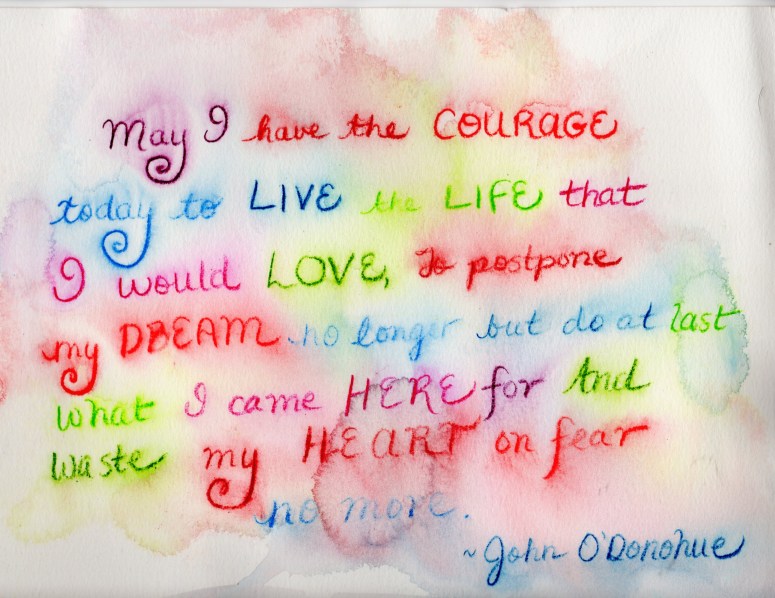 May I have the COURAGE
today to LIVE the LIFE that
I would LOVE, To postpone
my DREAM no longer but do at last
what I came HERE for And
waste my HEART on fear
no more.
~John O'Donohue